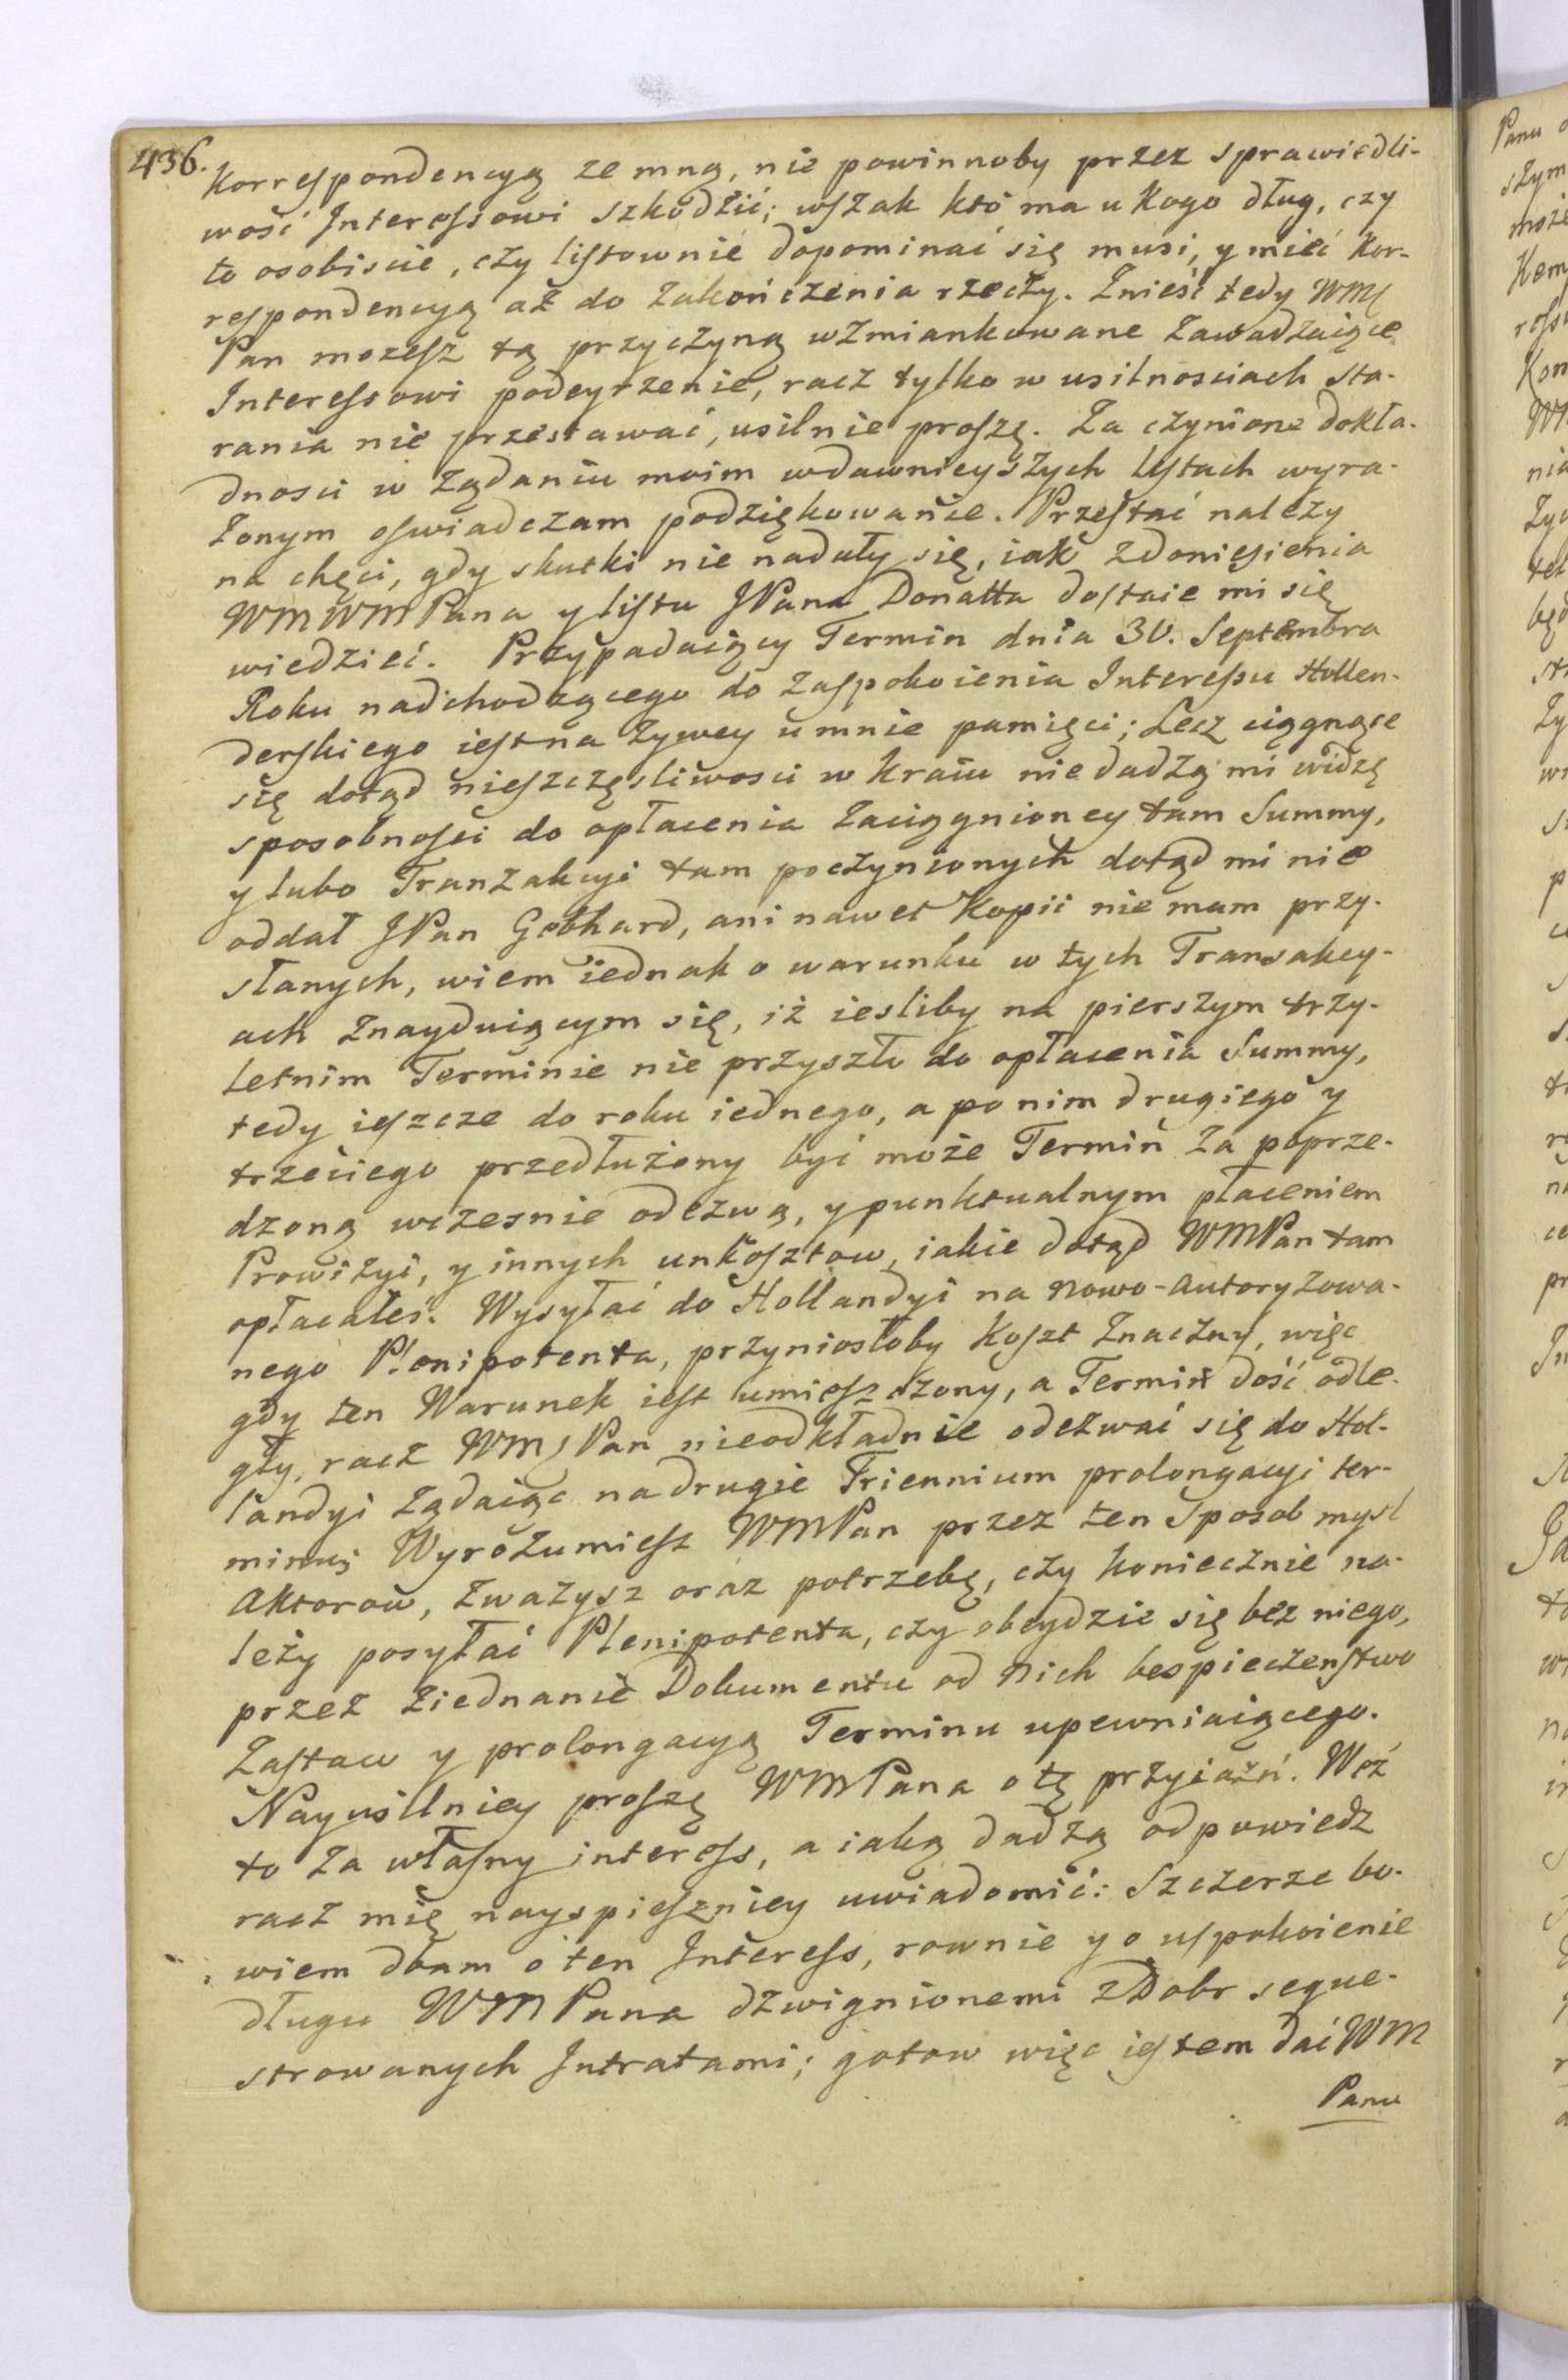 436.
Korrespondencyą ze mną, nie powinnoby przez sprawiedli-
wość Interessowi szkodzić; wszak kto ma u kogo dług, czy
to osobiscie, czy listownie dopominać się musi, y mieć kor-
respondencyą aż do zakończenia rzeczy. Znieść tedy WM
Pan mozesz tą przyczyną wzmiankowane zawadzaiące
Interessowi podeyrzenie, racz tylko w usilnosciach sta-
rania nie przestawać, usilnie proszę. Za czynione dokła-
dnosci w żądaniu moim wdawnieyszych listach wyra-
żonym oswiadczam podziękowanie. Przestać należy
na chęci, gdy skutki nie nadały się, iak zdoniesienia
WMWMPana y listu JPana Donatta dostaie mi się
wiedzieć. Przypadaiący Termin dnia 30. Septembra
Roku nadchodzącego do zaspokoienia Interessu Hollen-
derskiego iest na żywey u mnie pamięci; Lecz ciągnące
się dotąd nieszczęsliwosci w kraiu nie dadzą mi widzę
sposobności do opłacenia zaciągnioney tam Summy,
y lubo Tranzakcyi tam poczynionych dotąd mi nie
oddał JPan Gebhard, ani nawet Kopii nie mam przy-
słanych, wiem iednak o warunku w tych Transakcy-
ach znayduiącym się, iż iesliby na pierszym trzy-
letnim Terminie nie przyszło do opłacenia Summy,
tedy ieszcze do roku iednego, a po nim drugiego y
trzeciego przedłużony być może Termin za poprze-
dzoną wczesnie odezwą, y punktualnym płaceniem
Prowizyi, y innych unkosztow, iakie dotąd WMPan tam
opłacałeś. Wysyłać do Hollandyi na nowo-autoryzowa-
nego Plenipotenta, przyniosłoby koszt znaczny, więc
gdy ten Warunek iest umieszczony, a Termin dość odle-
gły, racz WMPan nieodkładnie odezwać się do Hol-
landyi żądaiąc na drugie Triennium prolongacyi ter-
minu; Wyrozumiesz WMPan przez ten sposob mysl
Aktorow, zważysz oraz potrzebę, czy koniecznie na-
leży posyłać Plenipotenta, czy obeydzie się bez niego,
przez ziednanie Dokumentu od nich bespieczenstwo
Zastaw y prolongacyą Terminu upewniaiącego.
Nayusilniey proszę WMPana o tę przyiaźń. Weź
to za własny interess, a iaką dadzą odpowiedz
racz mię nayspieszniey uwiadomić: Szczerze bo-
wiem dbam o ten Interess, rownie y o uspokoienie
długu WMPana dzwignionemi z Dobr seque-
strowanych Intratami; gotow więc iestem dać WM
Panu